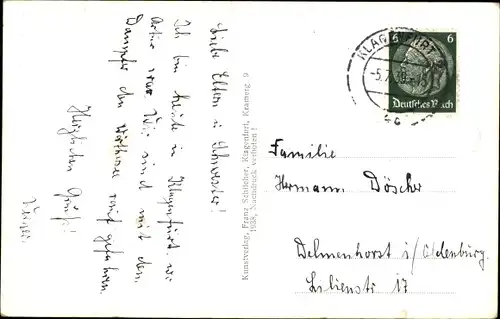 Liebe Eltern u Schwester!
Ich bin heute in Klagenfurt. wi
Wir sind mit dem
Dampfer den Wörthersee rauf gefahren.
Herzlichen Gruß!
Kunstverlag, Franz Schilcher, Klagenfurt, Kramerg. 9
1938, Nachdruck verboten!
KLAGENFURT
-5.
4c
6 6
Deutsches Reich
Familie
Hermann Döscher
Delmenhorst i/Oldenburg.
Lilienstr 17